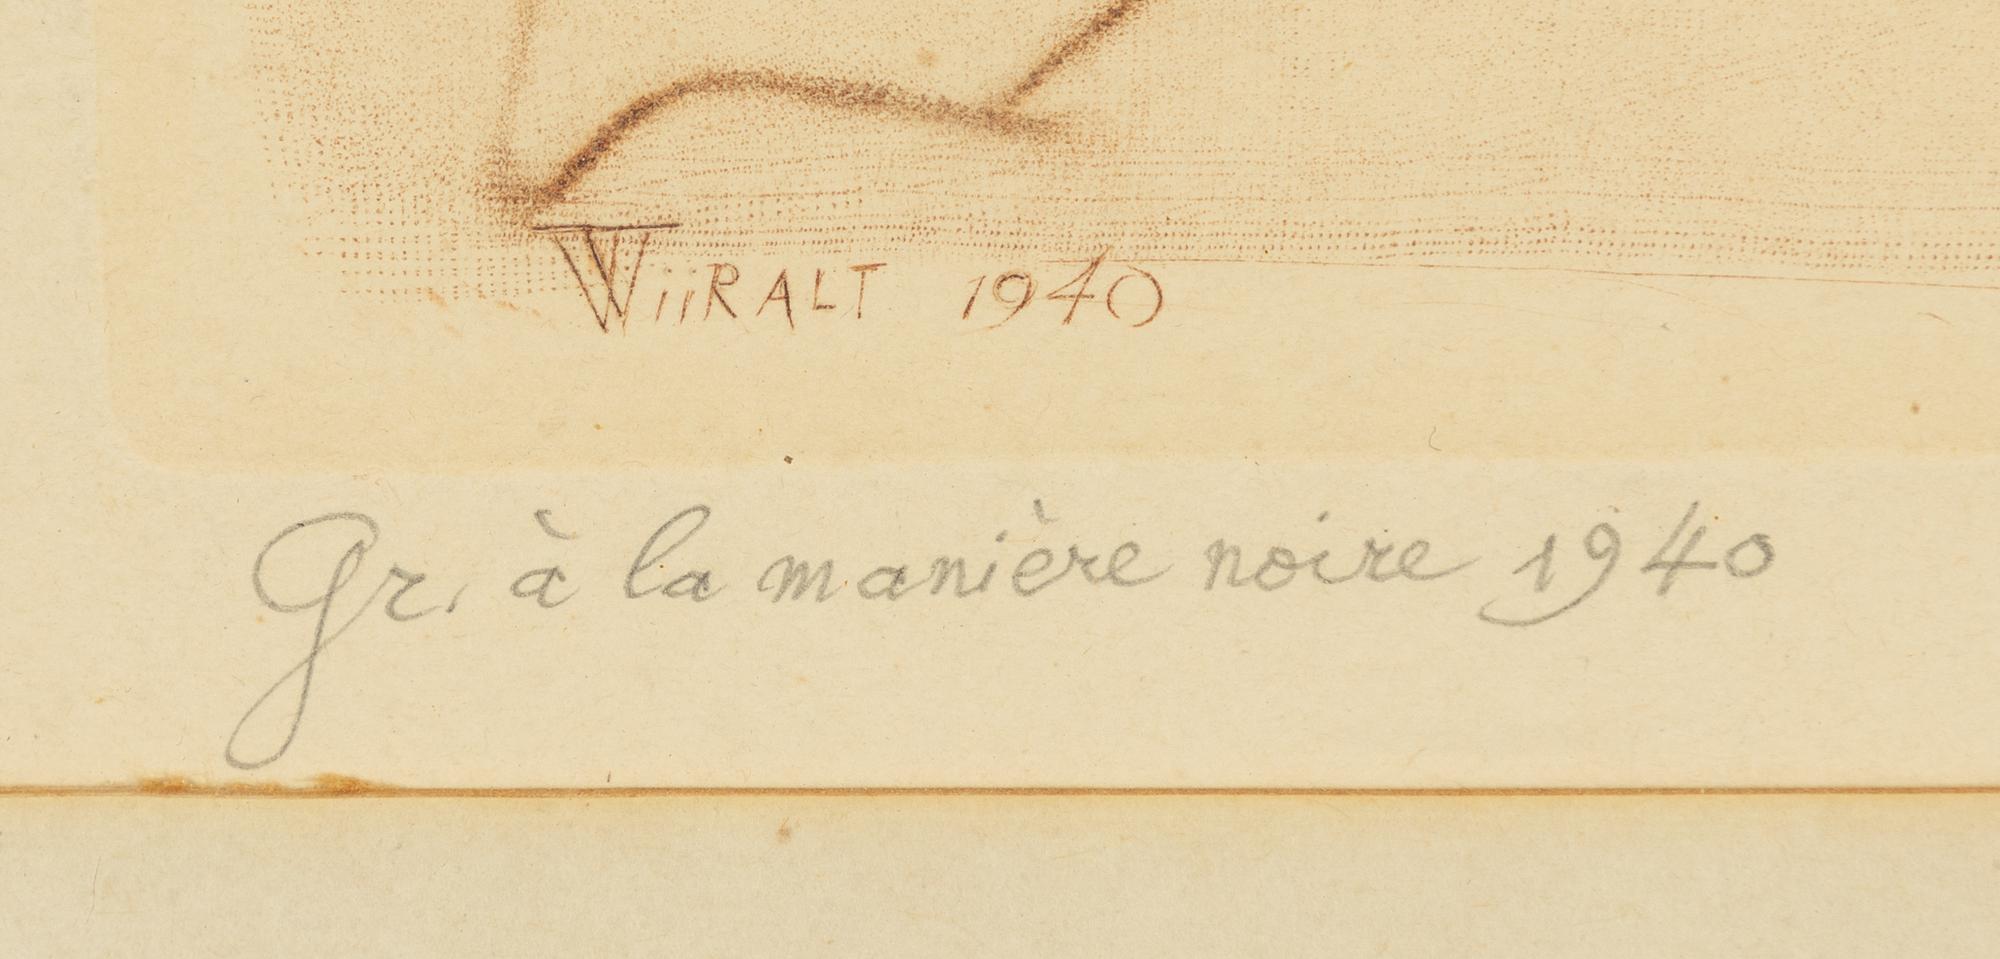 WiiRALT 1940
Gr. à la manière noire 1940